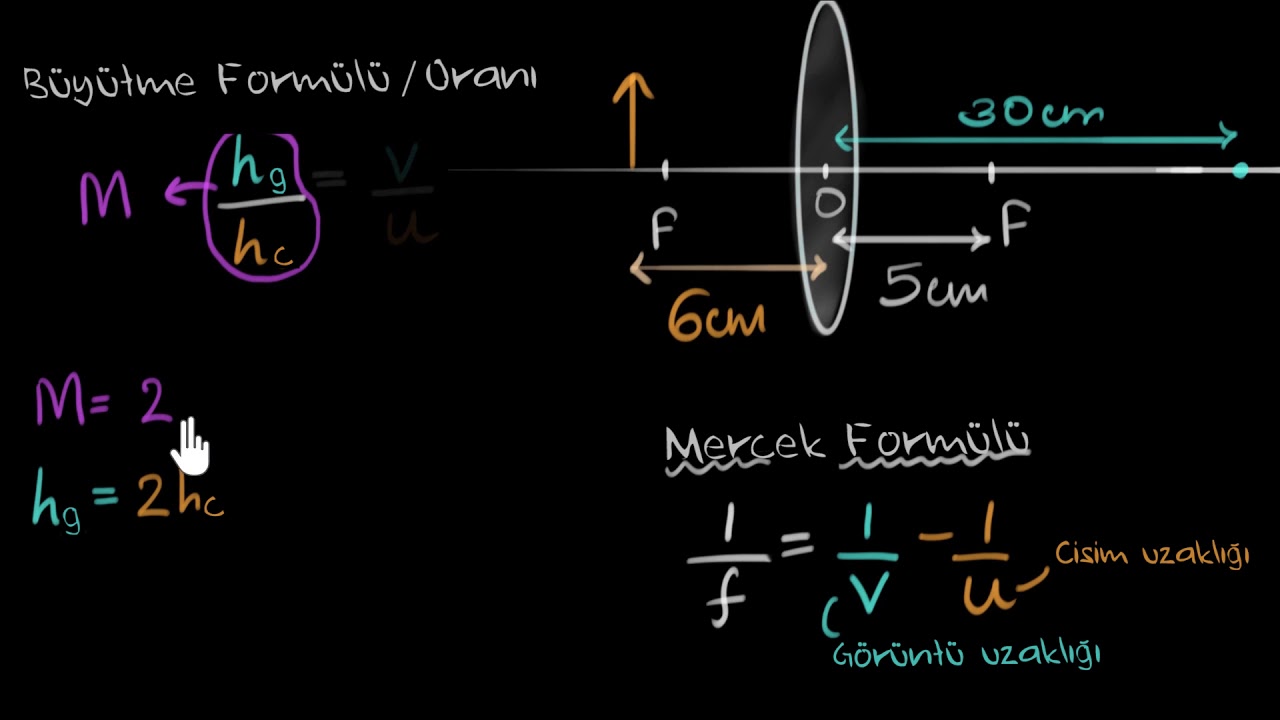 Büyütme Formülü / Oranı
M ← hg / hc = v / u
M = 2
hg = 2hc
30cm
F O F
6cm
5cm
Mercek Formülü
1/f = 1/v - 1/u
Cisim uzaklığı
Görüntü uzaklığı